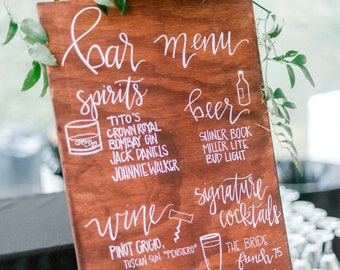 bar menu
spirits
TITO'S
CROWN ROYAL
BOMBAY GIN
JACK DANIELS
JOHNNIE WALKER
beer
SHINER BOCK
MILLER LITE
BUD LIGHT
wine
PINOT GRIGIO,
TUSCAN SUN "PENSIERO"
signature
cocktails
THE BRIDE
french 75